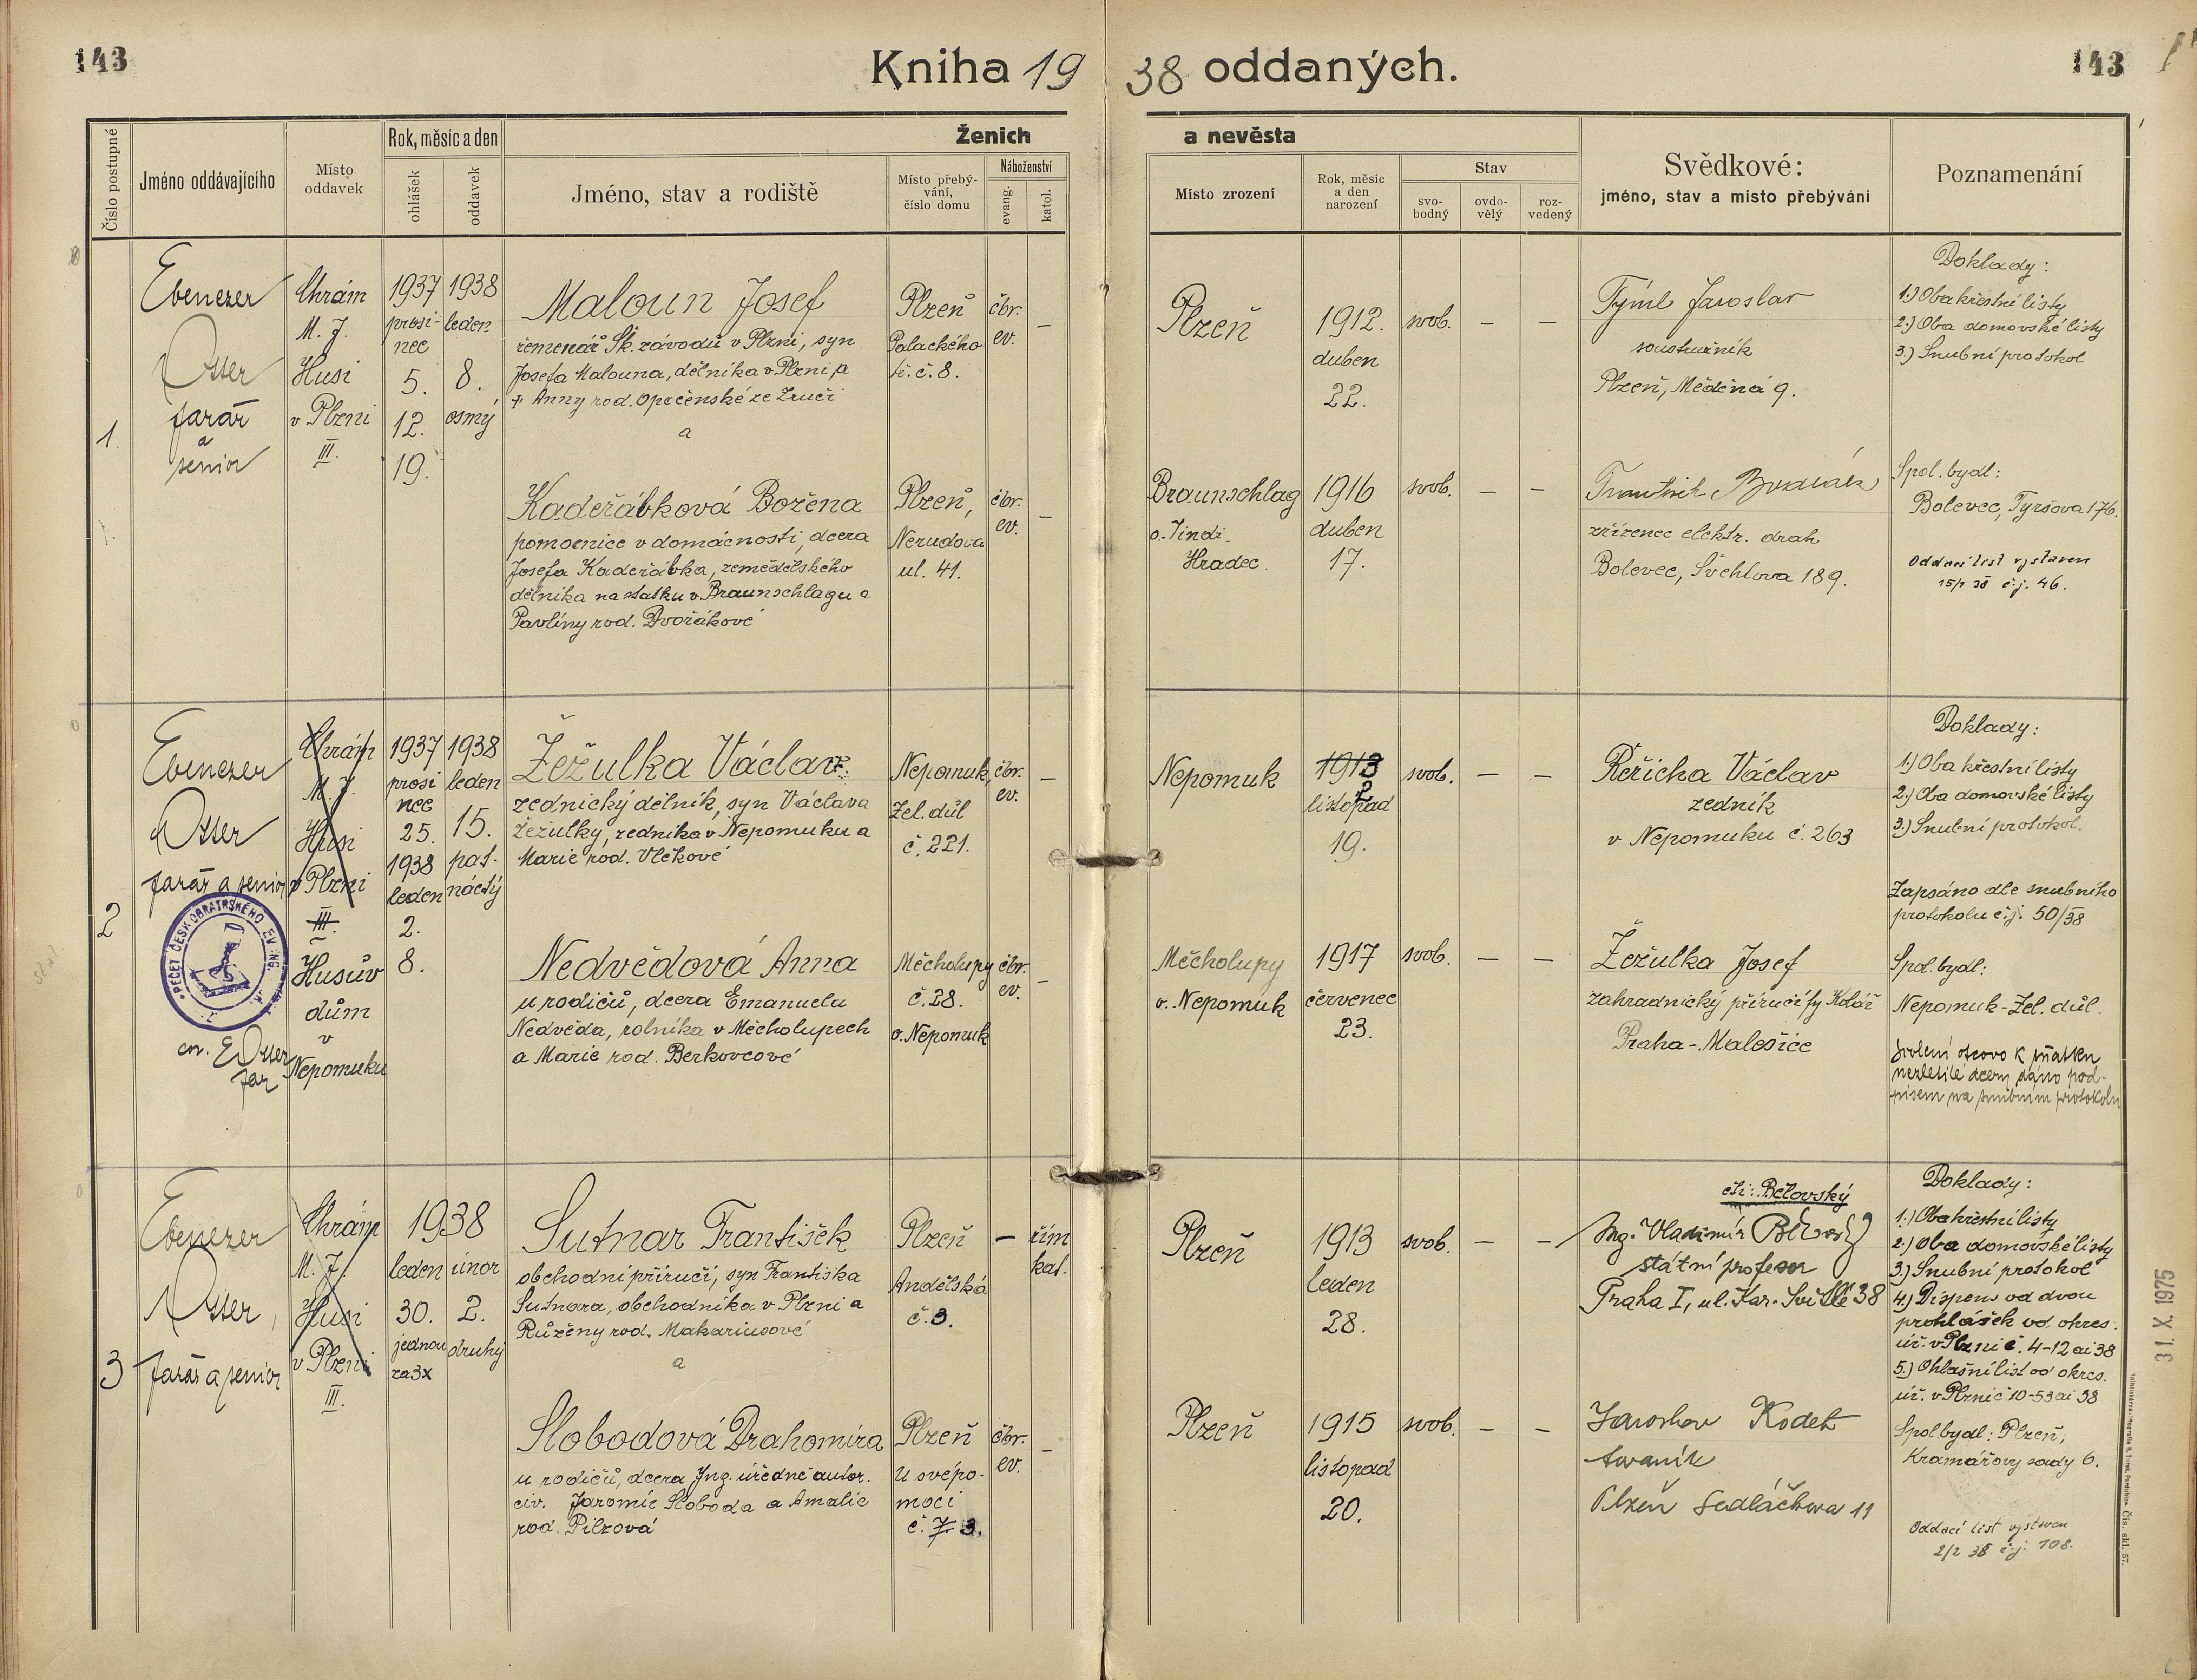 143
Kniha 1938 oddaných.
143
Číslo postupné
Jméno oddávajícího
Místo oddavek
Rok, měsíc a den
ohlášek
oddavek
Ženich
a nevěsta
Jméno, stav a rodiště
Místo přebý-
vání,
číslo domu
Náboženství
evang.
katol.
Místo zrození
Rok, měsíc
a den
narození
Stav
svo-
bodný
ovdo-
vělý
roz-
vedený
Svědkové:
jméno, stav a místo přebývání
Poznamenání
1.
Ebenezer
Otter
farář
a
senior
Chrám
M. J.
Husi
v Plzni
III.
1937
prosi-
nec
5.
12.
19.
1938
leden
8.
osmý
Maloun Josef
řemenář Šk. závodů v Plzni, syn
Josefa Malouna, dělníka v Plzni, a
+ Anny rod. Opočenské ze Zruči
a
Plzeň
Palackého
tř. č. 8.
čbr.
ev.
–
Plzeň
1912.
duben
22.
svob.
–
–
Týml Jaroslav
soustružník
Plzeň, Měděná 9.
Doklady:
1.) Oba křestní listy
2.) Oba domovské listy
3.) Snubní protokol
Kadeřábková Božena
pomocnice v domácnosti, dcera
Josefa Kadeřábka, zemědělského
dělníka na statku v Braunschlagu a
Pavlíny rod. Dvořákové
Plzeň,
Nerudova
ul. 41.
čbr.
ev.
–
Braunschlag
o. Jindř.
Hradec.
1916
duben
17.
svob.
–
–
František
zřízenec elektr. drah
Bolevec, Švehlova 189.
Spol. bydl:
Bolevec, Tyršova 176.
Oddací list vystaven
15/1 38 č.j. 46.
2
Ebenezer
Otter
farář a senior
PEČEŤ ČESKOBRATRSKÉHO EVANG.
Otter
far
Chrám
M. J.
Husi
v Plzni
III.
Husův
dům
v
Nepomuku
1937
prosi
nec
25.
1938
leden
2.
8.
1938
leden
15.
pat-
náctý
Žežulka Václav
zednický dělník, syn Václava
Žežulky, zedníka v Nepomuku a
Marie rod. Vlčkové
Nepomuk,
Žel. důl
č. 221.
čbr.
ev.
–
Nepomuk
1913
2
listopad
19.
svob.
–
–
Řeřicha Václav
zedník
v Nepomuku č. 263
Doklady:
1.) Oba křestní listy
2.) Oba domovské listy
3.) Snubní protokol.
Zapsáno dle snubního
protokolu č.j. 50/38
Nedvědová Anna
u rodičů, dcera Emanuela
Nedvěda, rolníka v Měcholupech
a Marie rod. Berkovcové
Měcholupy
č. 28.
o. Nepomuk
čbr.
ev.
–
Měcholupy
o. Nepomuk
1917
červenec
23.
svob.
–
–
Žežulka Josef
zahradnický příručí fy Kolář
Praha-Malešice
Spol. bydl:
Nepomuk-Žel. důl.
Svolení otcovo k sňatku
nezletilé dcery dáno pod-
pisem na snubním protokolu
3
Ebenezer
Otter,
farář a senior
Chrám
M. J.
Husi
v Plzni
III.
1938
leden
30.
jednou
za 3x
únor
2.
druhý
Sutnar František
obchodní příručí, syn Františka
Sutnara, obchodníka v Plzni a
Růženy rod. Makariusové
a
Plzeň
Andělská
č. 3.
–
řím
kat.
Plzeň
1913
leden
28.
svob.
–
–
čti: Bělovský
Ing. Vladimír Bělovský
státní profesor
Praha I, ul. Kar. Světlé 38
Doklady:
1.) Oba křestní listy
2.) Oba domovské listy
3.) Snubní protokol
4.) Dispens od dvou
prohlášek od okres.
úř. v Plzni č. 4-12 ai 38
5.) Ohlašní list od okres.
úř. v Plzni č. 10-53 ai 38
Slobodová Drahomíra
u rodičů, dcera Ing. úředně autor.
civ. Jaromír Sloboda a Amalie
rod. Pilzová
Plzeň
U svépo-
moci
č. 7 3.
čbr.
ev.
–
Plzeň
1915
listopad
20.
svob.
–
–
Jaroslav Kodet
továrník
Plzeň Sedláčkova 11
Spol. bydl: Plzeň,
Kramářovy sady 6.
Oddací list vystaven
2/2 38 č.j. 108.
31. X. 1975
Čís. skl. 57.